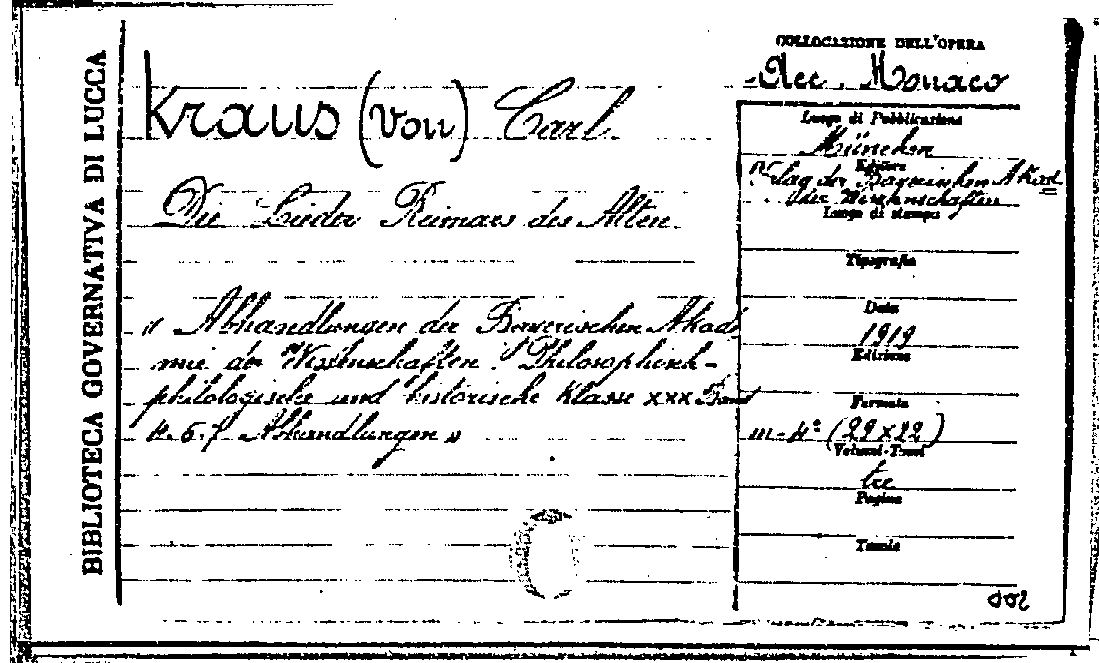 BIBLIOTECA GOVERNATIVA DI LUCCA
Kraus (von) Carl.
Die Lieder Reimars des Alten.
" Abhandlungen der Bayerischen Akade
mie der Wissenschaften. Philosophisch-
philologische und historische Klasse XXX Band
4. 6. 7 Abhandlungen »
COLLOCAZIONE DELL'OPERA
Acc. Monaco
Luogo di Pubblicazione
München
Editore
Verlag der Bayerischen Akad
der Wissenschaften
Luogo di stampa
Tipografia
Data
1919
Edizione
Formato
in-4° (29x22)
Volumi-Tomi
tre
Pagine
Tavole